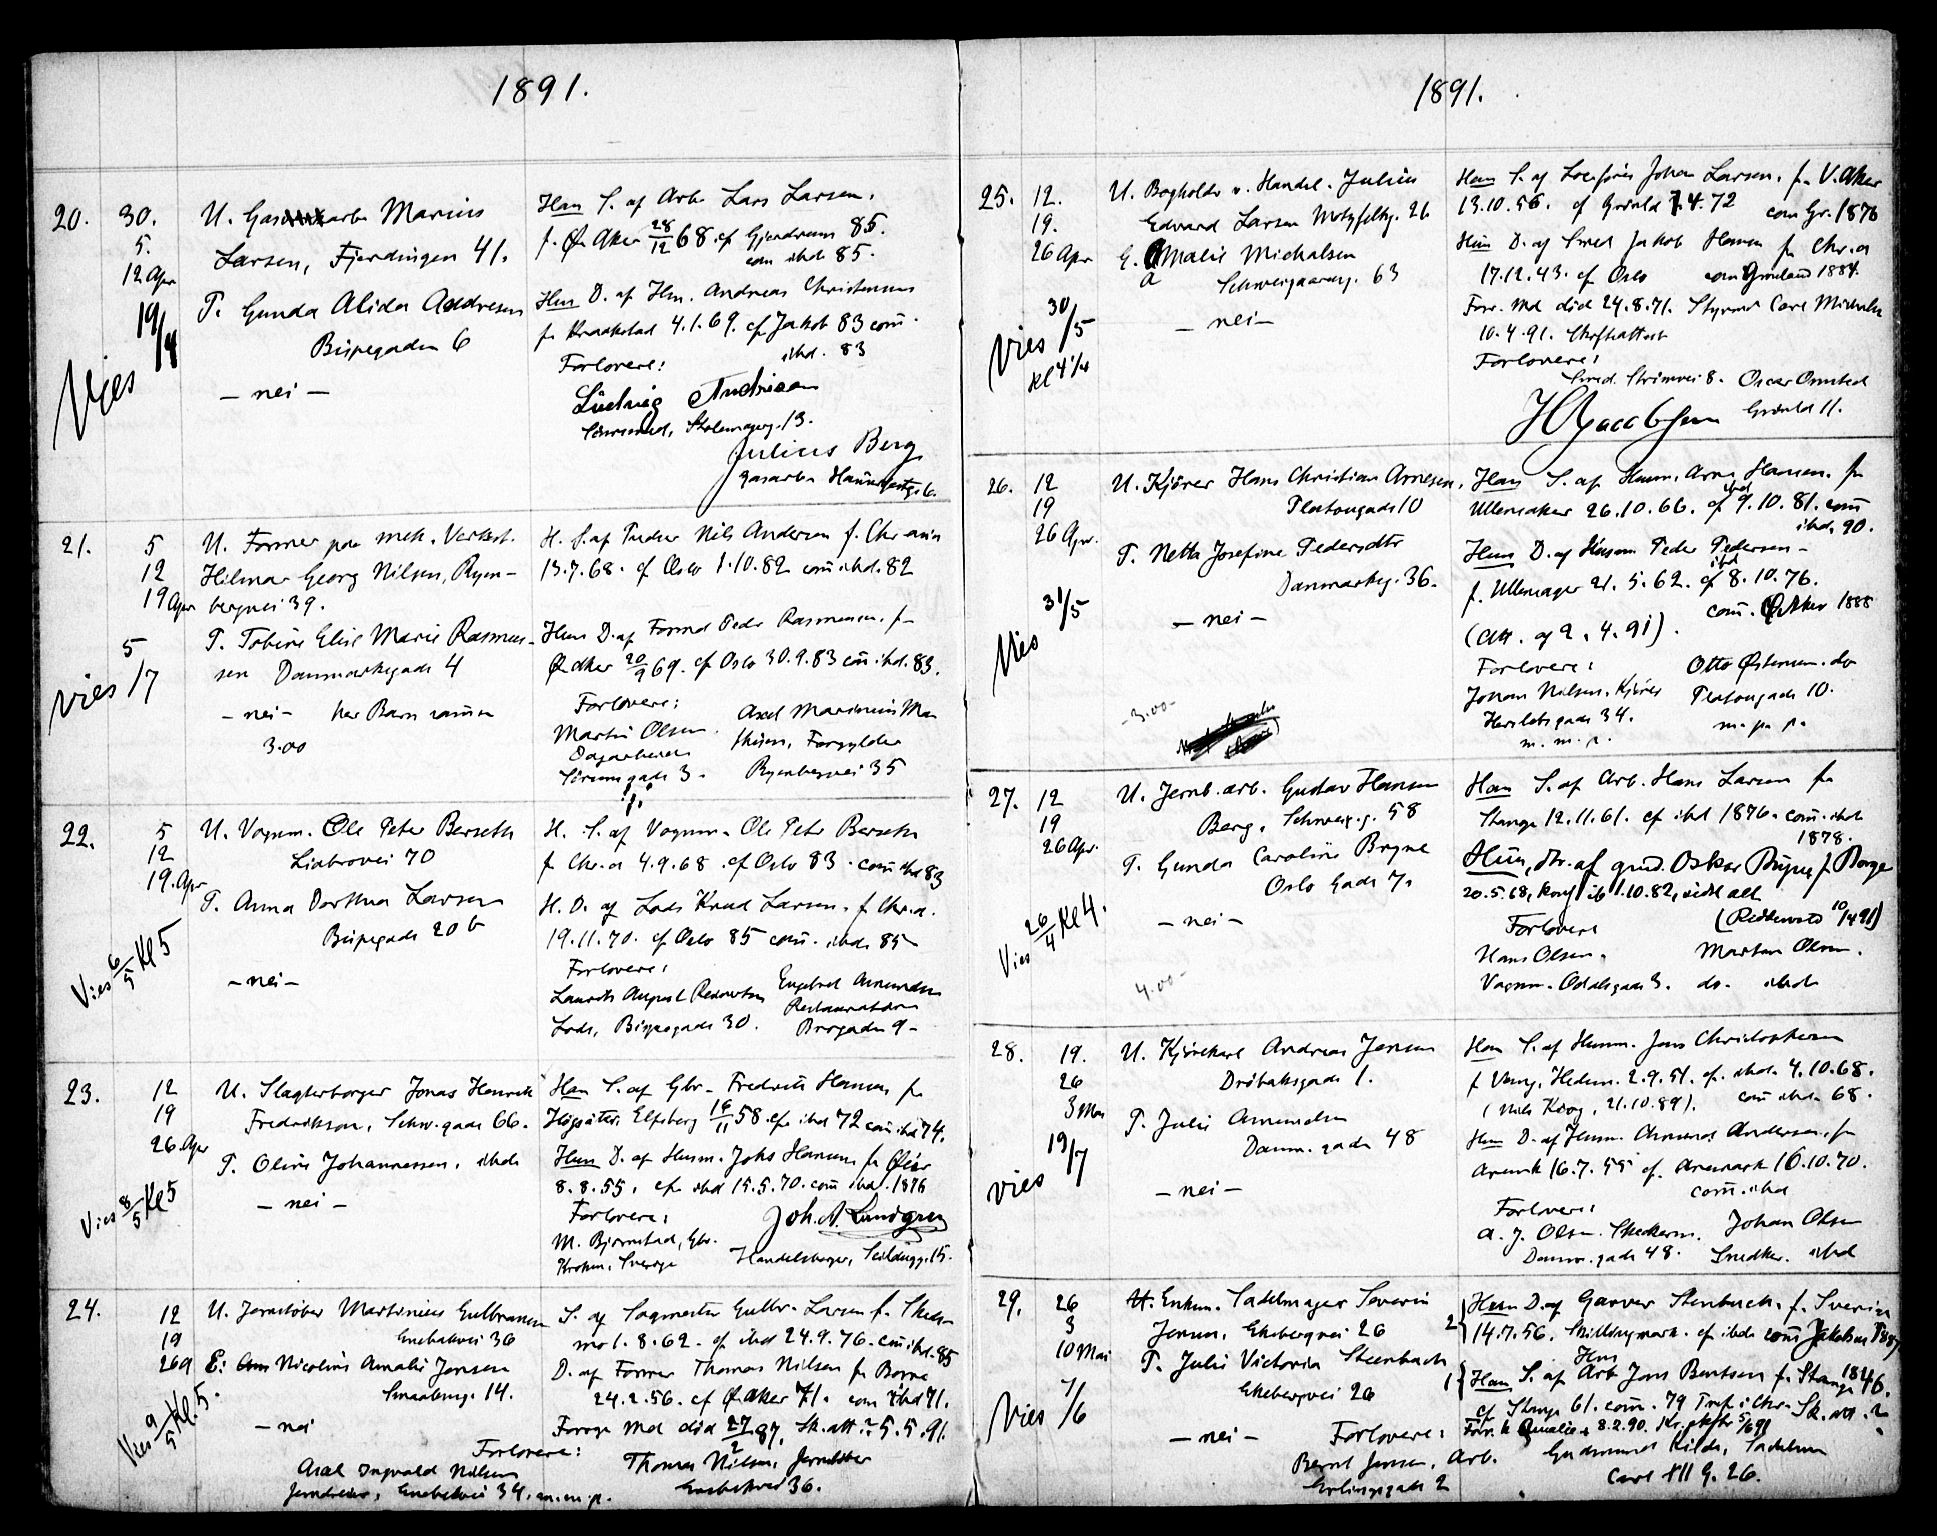 1891.
20. 30.
5.
12 Apr
19/4
Vies
U. Gasarb. Marius
Larsen, Fjerdingen 41.
P. Gunda Alida Andresen
Bispegaden 6
— nei —
Han S. af Arb. Lars Larsen.
f. Ø. Aker 28/12 68. cf Gjerdrum 85.
com ibd 85.
Hun D. af Hm. Andreas Christensen
f. Kraakstad 4.1.69. cf Jakob 83 com.
ibd. 83
Forlovere:
Ludvig Andresen
13.
Julius Berg
gasarb.
21. 5
12
19 Apr
5/7
Vies
U. Former paa mek. Verkst.
Hilmar Georg Nilsen, Ryen-
bergvei 39.
P. Tobine Elise Marie Rasmus-
sen Danmarksgade 4
— nei — har Barn sammen
3.00
H. S. af Nils Andersen f. Chr.ania
13.7.68. cf Oslo 1.10.82 com ibd. 82
Hun D. af Formd Peder Rasmussen. f.
Ø. Aker 20/9 69. cf Oslo 30.9.83 com ibd. 83.
Forlovere:
Martin Olsen.
Dagarbeider
gade 3.
Axel Marinius Ma
thisen, Forgylder
Ryenbergvei 35
22. 5
12
19. Apr
Vies 6/5 Kl 5
U. Vognm. Ole Peter Berseth
Liabrovei 70
P. Anna Dorthea Larsen
Bispegade 20 b
— nei —
H. S. af Vognm. Ole Petr Berseth
f Chr.a 4.9.68. cf Oslo 83. com ibd 83
H. D. af Lods Knud Larsen. f. Chr.a.
19.11.70. cf Oslo 85 com. ibd. 85
Forlovere:
Laurits August
Lods, Bispegade 30.
Engebret Amundsen
Restauratør
Brogaden 9
23. 12
19
26. Apr
Vies 8/5 Kl 5
U. Slagterborger Jonas Henrik
Fredrikson, Schw. gade 66.
P. Oline Johannessen. ibd.
— nei —
Han S. af Gbr. Fredrik Hansen f.
Högsäter, Elfsborg 16/11 58. cf. ibd 72 com ibd 74.
Hun D. af Husm. Johs Hansen f.
8.8.55. cf. ibd 15.5.70. com ibd. 1876
Forlovere:
M. Bjørnstad, Gbr.
Kroken, Sverige
Joh. A. Lundgren
Handelsborger, 15.
24. 12
19
26 A
Vies 9/5 Kl. 5.
U. Jernstøber Martinius Gulbransen
Enebakvei 36
E: Nicoline Amalie Jonsen
Smaaberg. 14.
— nei
S. af Sagmester Gulbr. Larsen f. Skeds-
mo 1.8.62. cf ibd 24.9.76. com ibd. 85
D. af Former Thomas Nilsen f. Borre
24.2.56. cf Ø. Aker 71. com ibd 71.
Forrige Md død 27/2 87. Sk. att. 5.5.91.
Forlovere:
Axel Ingvald Nilsen
Jerndreier, Enebakvei 34. m.m.p.
Thomas Nilsen, Jernstøber
Enebakvei 36.
1891.
25. 12.
19.
26 Apr
30/5
Vies
Kl 4 1/4
U. Bogholder v. Handel. Julius
Edvard Larsen Motzfeldtg. 26
E. Amalie Michalsen
a Schweigaardsg. 63
— nei —
Han S. af Johan Larsen. f. V. Aker
13.10.56. cf Grønld 7.4.72 com Gr. 1876
Hun D. af Smed Jakob Hansen f. Chr.a
17.12.43. cf Oslo com Grønland 1884.
Forr. Md død 24.8.71. Styrmd Carl Michalsen
10.4.91. Skifteattest
Forlovere:
Smed. 8. Oscar Omsted
H Jacobsen Grønld 11.
26. 12
19
26 Apr.
31/5
Vies
U. Kjører Hans Christian Arnesen,
Platousgade 10
P. Nette Josefine Pedersdtr
Danmarksg. 36.
— nei —
-3.00-
Han S. af Husm. Arne Hansen. f.
Ullensaker 26.10.66. cf ibd 9.10.81. com
ibd. 90.
Hun D. af Husm Peder Pedersen —
f. Ullensager 21.5.62. cf ibd 8.10.76.
com. Ø. Aker 1888
(att. af 2.4.91).
Forlovere:
Johan Nilsen, Kjører
Herslebsgade 34.
m. m. p.
Otto Østensen. do
Platousgade 10.
m. p. p.
27. 12
19
26 Apr.
Vies 26/4 Kl 4.
U. Jernb. arb. Gustav Hansen
Berg, Schweig. g. 58
P. Gunda Caroline Bryne
Oslo Gade 7.
— nei —
4.00-
Han S. af Arb. Hans Larsen f.
Stange 12.11.61. cf ibd 1876. com. ibd
1878.
Hun, dtr. af Oskar f. Borge
20.5.68, konf ib 1.10.82,
Forlovere
Hans Olsen,
Vognm. Odalsgade 3.
Morten Olsen.
do. ibd.
28. 19.
26
3 Mai
19/7
Vies
U. Kjørekarl Andreas Jensen
Drøbaksgade 1.
P. Julie Amundsen
Danm. gade 48
— nei —
Han S. af Husm. Jens Christophersen
f Vang, Hedem. 2.9.51. cf. ibd. 4.10.68.
(Nils Krog, 21.10.89). com ibd. 68.
Hun D. af Husm. Amund Andersen. f.
Aremark 16.7.55 cf. Aremark 16.10.70.
com. ibd
Forlovere:
A. J. Olsen.
Danm. gade 48.
Johan Olsen
Snedker. ibd
29. 26
3
10 Mai
7/6
Vies
U. Enkem. Sadelmager Severin
Jensen, Ekebergvei 26
P. Julie Victoria Steenbach
Ekebergvei 26
— nei —
2 Hun D. af Garver Stenbuch. f. Sverige
14.7.56. cf. ibd. com Jakobs 1887
1 Han S. af Arb Jens Bentsen f. Stange 1846.
cf Stange 61. com. 79 Sk. att.
Forr. h Amalie + 8.2.90.
Forlovere:
Bernt Jensen, Arb.
Erlingsgade 2
Gudmund Kilde, Sadelm
Carl XII G. 26.